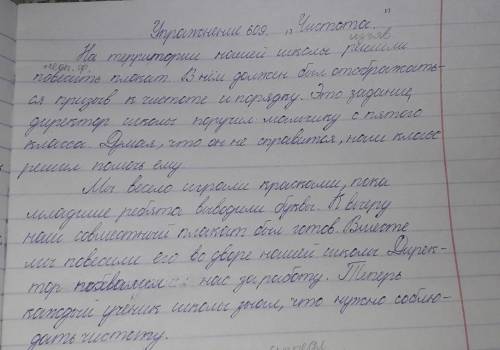 Упражнение 609. „Чистота."
изъяв
На территории нашей школы решили
неоп. ф.
повесить плакат. В нём должен был отображать-
ся призыв к чистоте и порядку. Это задание
директор школы поручил мальчику с пятого
класса. Думая, что он не справится, наш класс
решил помочь ему.
Мы весело играли красками, пока
младшие ребята выводили буквы. К вечеру
наш совместный плакат был готов. Вместе
мы повесили его во дворе нашей школы. Дирек-
тор похвалил нас за работу. Теперь
каждый ученик школы знал, что нужно соблю-
дать чистоту.